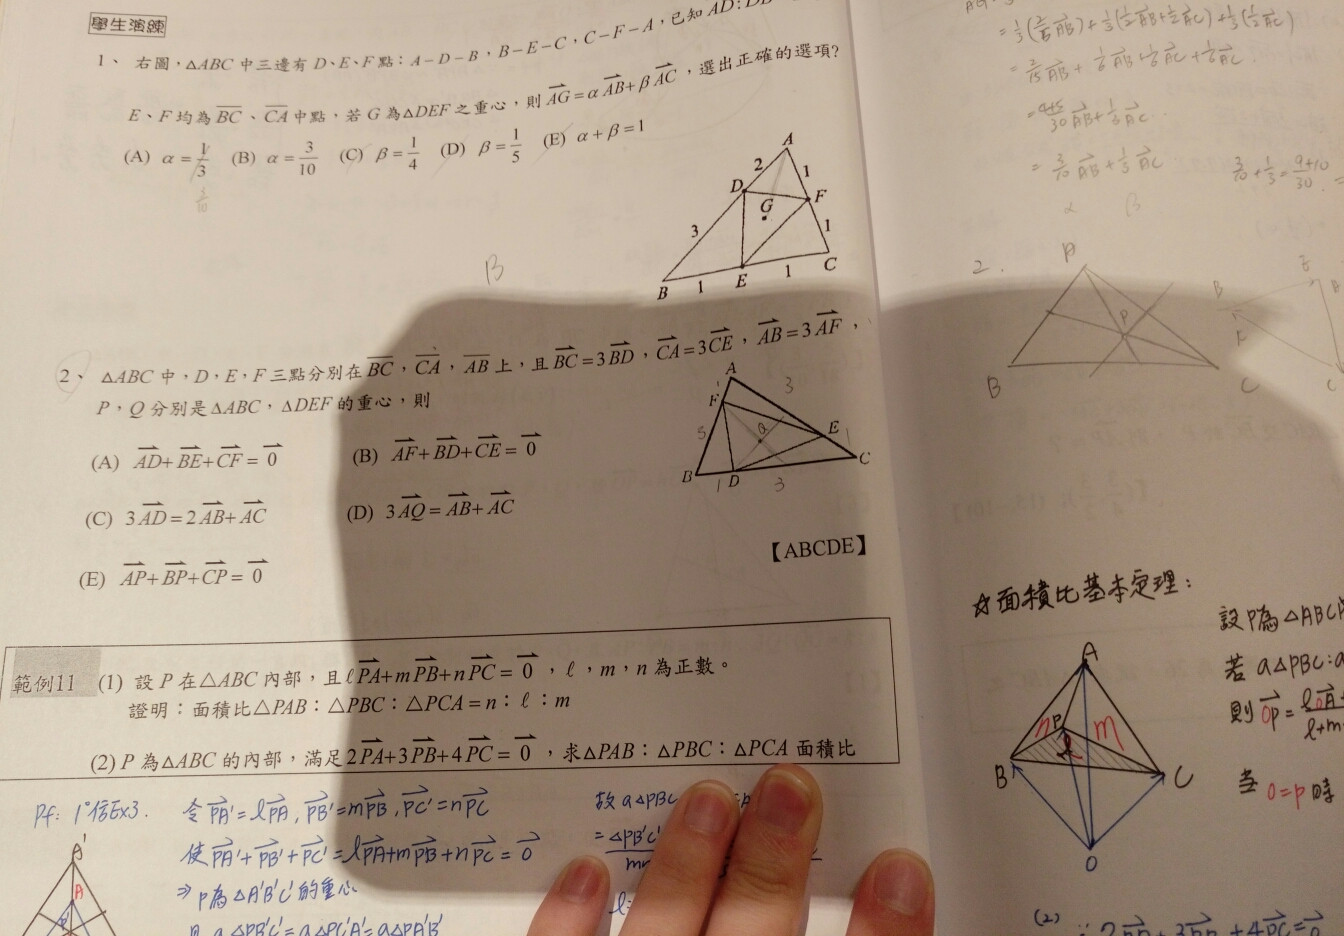 學生演練
1、右圖，△ABC 中三邊有 D、E、F 點：A－D－B，B－E－C，C－F－A，已知 AD:DB
E、F 均為 BC、CA 中點，若 G 為△DEF 之重心，則 AG=αAB+βAC，選出正確的選項？
(A) α=1/3 (B) α=3/10 (C) β=1/4 (D) β=1/5 (E) α+β=1
3/10
A
2 1
D F
G
3 1
B 1 E 1 C
B
2、△ABC 中，D，E，F 三點分別在 BC，CA，AB 上，且 BC=3BD，CA=3CE，AB=3AF，
P，Q 分別是△ABC，△DEF 的重心，則
(A) AD+BE+CF=0 (B) AF+BD+CE=0
(C) 3AD=2AB+AC (D) 3AQ=AB+AC
(E) AP+BP+CP=0
A 3
F
Q E 1
B 1 D 3 C
【ABCDE】
範例11 (1) 設 P 在△ABC 內部，且 ℓPA+mPB+nPC=0，ℓ，m，n 為正數。
證明：面積比△PAB：△PBC：△PCA=n：ℓ：m
(2) P 為△ABC 的內部，滿足 2PA+3PB+4PC=0，求△PAB：△PBC：△PCA 面積比
Pf: 1° 令 PA'=ℓPA, PB'=mPB, PC'=nPC
使 PA'+PB'+PC'=ℓPA+mPB+nPC=0
⇒ P為△A'B'C'的重心
a△PB'C'=a△PC'A'=a△PA'B'
故 a△PBC
=△PB'C'
A'
A
=1/3(2/5AB)+1/3(1/2AB+1/2AC)+1/3(1/2AC)
=2/15AB+1/6AB+1/6AC+1/6AC
=4+5/30AB+1/3AC
=3/10AB+1/3AC 3/10+1/3=9+10/30
α β
2.
A
P
B C
☆面積比基本定理：
設P為△ABC
若 a△PBC:a
則 OP=
當 O=P 時
A
P
n m
ℓ
B C
O
(2) ∵ 2PA+3PB+4PC=0